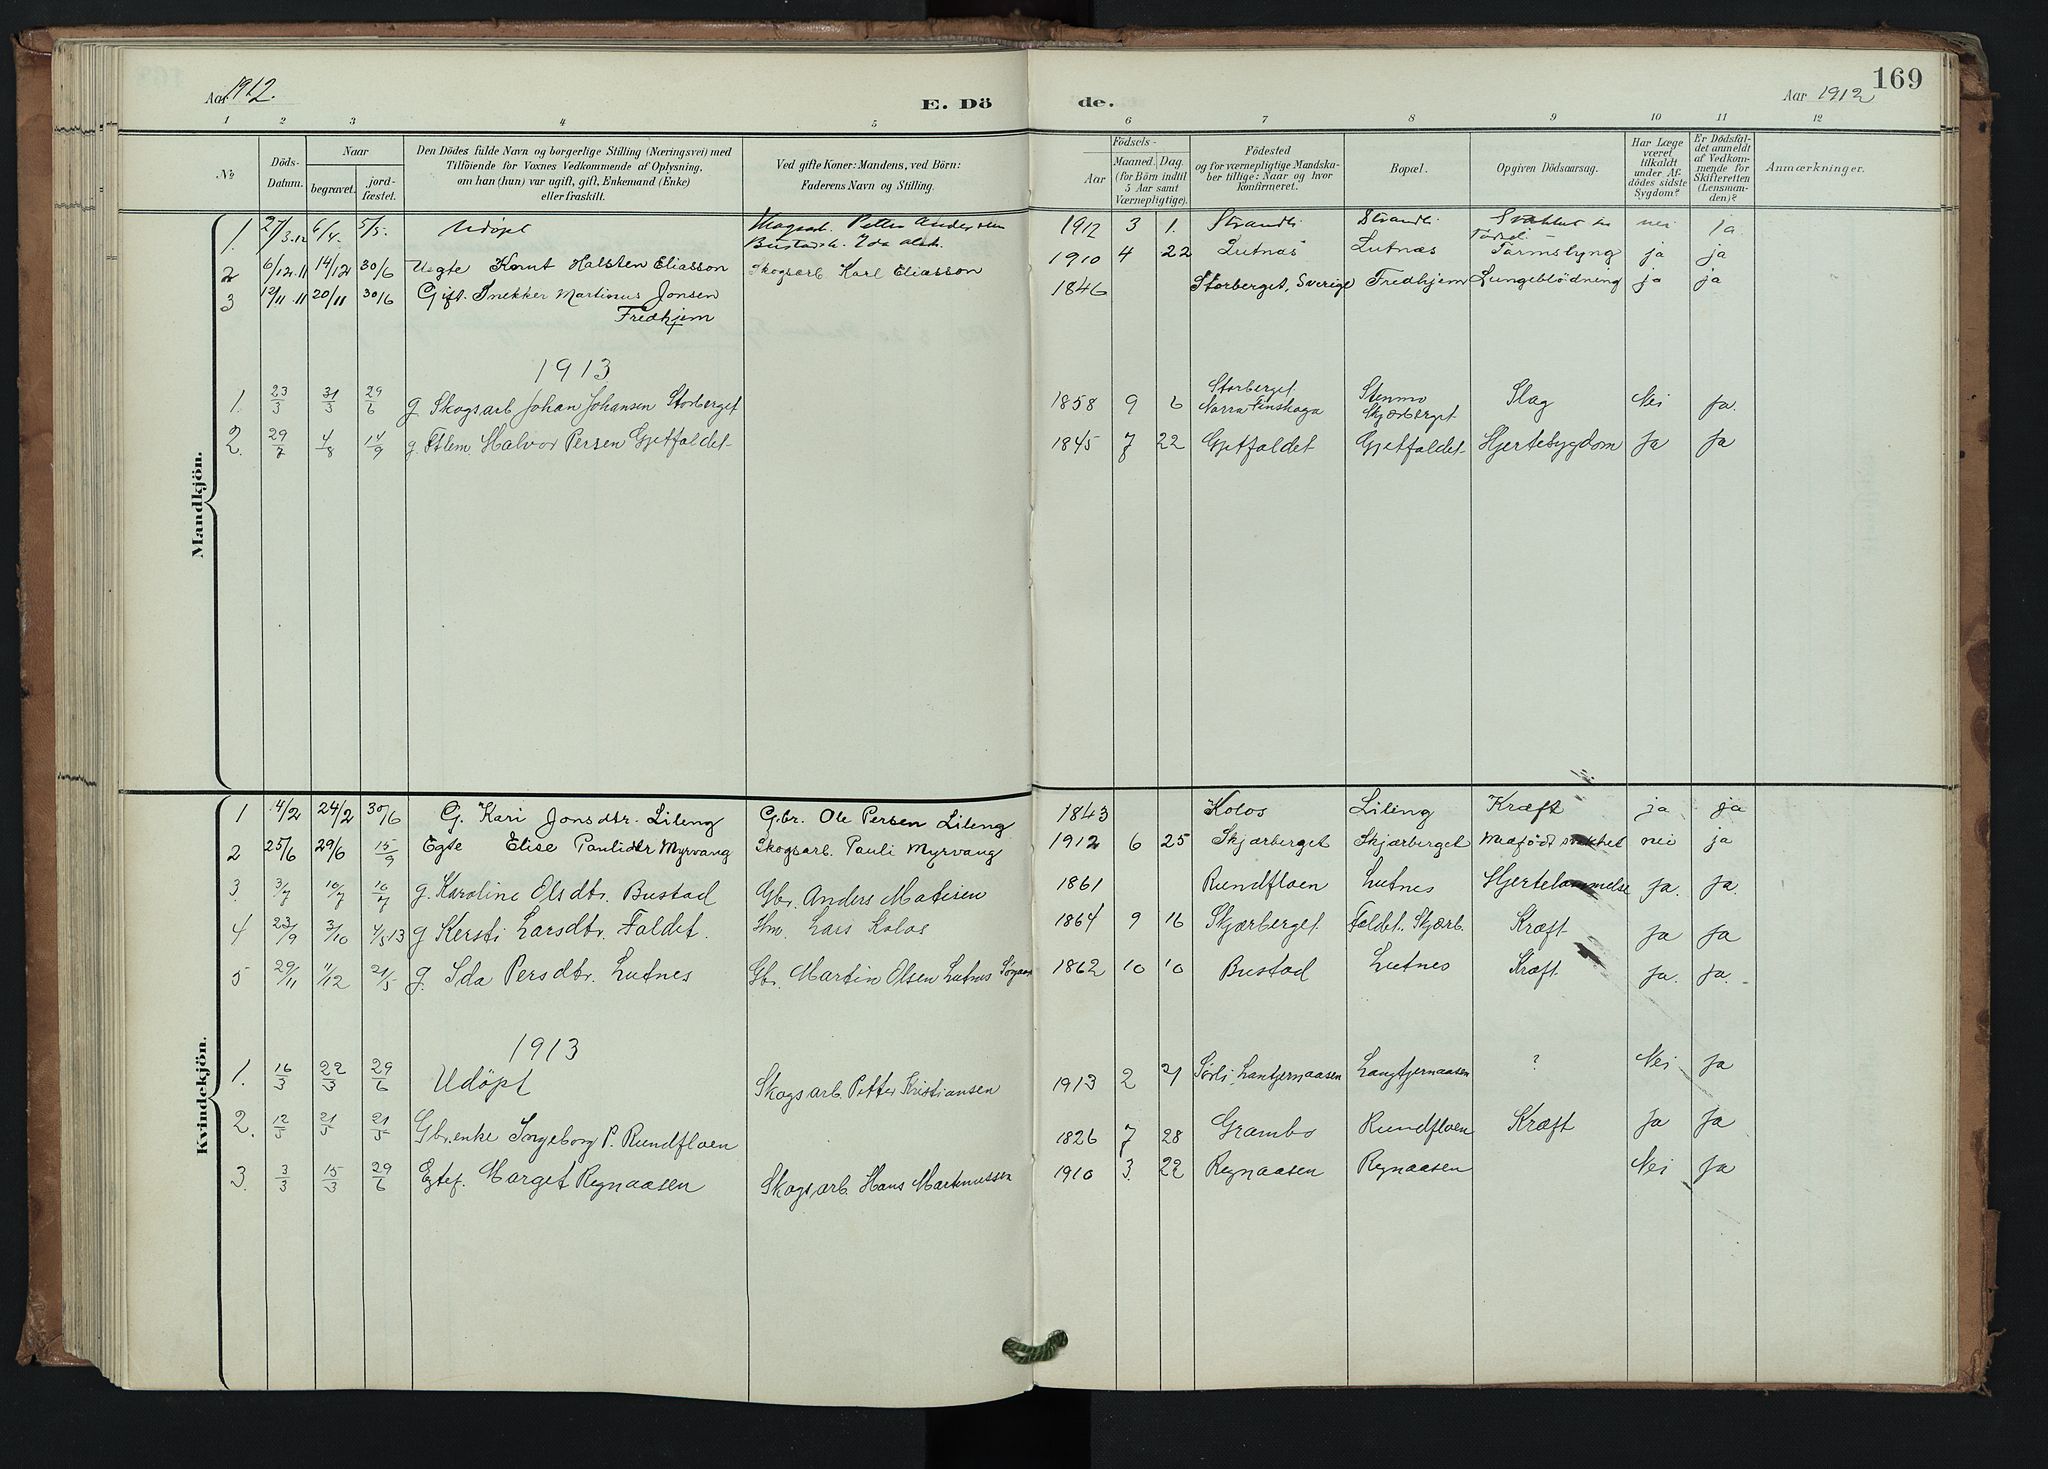 Aar 1912.
E. Dö de.
Aar 1912
169
1 2 3 4 5 6 7 8 9 10 11 12
№
Döds-Datum.
Naar
begravet.
jord-fæstet.
Den Dödes fulde Navn og borgerlige Stilling (Næringsvei) med
Tilföiende for Voxnes Vedkommende af Oplysning,
om han (hun) var ugift, gift, Enkemand (Enke)
eller fraskilt.
Ved gifte Koner: Mandens, ved Börn:
Faderens Navn og Stilling.
Födsels-
Aar
Maaned. Dag.
(for Börn indtil
5 Aar samt
Værnepligtige).
Födested
og for værnepligtige Mandska-
ber tillige: Naar og hvor
konfirmeret.
Bopæl.
Opgiven Dödsaarsag.
Har Læge
været
tilkaldt
under Af-
dödes sidste
Sygdom?
Er Dödsfal-
det anmeldt
af Vedkom-
mende for
Skifteretten
(Lensman-
den)?
Anmærkninger.
Mandkjön.
1. 27/3.12 6/4. 5/5. Udöpt Skogsarb. Petter Andersen 1912 3 1. Strandli Strandli nei ja
Ida
2 6/12.11 14/12 30/6 Uegte Knut Halsten Eliasson Skogsarb Karl Eliasson 1910 4 22 Lutnäs Lutnæs Tarmslyng ja ja
3 12/11.11 20/11 30/6 Gift. Snekker Martinus Jonsen 1846 Storberget, Sverige Fredhjem Lungeblödning ja ja
Fredhjem
1913
1. 23/3 31/3 29/6 g Skogsarb Johan Johansen Storberget 1858 9 6 Storberget Norra Finskoga Stenmo Skjærberget Slag Nei Ja.
2. 29/7 4/8 14/9 g. Halvor Persen Gjetfaldet 1845 7 22 Gjetfaldet Gjetfaldet Hjertesygdom Ja Ja
Kvindekjön.
1 4/2 24/2 30/6 G. Kari Jonsdtr. Liling Gbr. Ole Persen Liling 1843 Kolos Liling Kræft ja ja
2 25/6 29/6 15/9 Egte Elise Paulidtr Myrvang Skogsarb. Pauli Myrvang 1912 6 25 Skjærberget Skjærberget Medfødt svakhet nei ja
3. 3/7 10/7 10/7 g. Karoline Olsdtr. Bustad Gbr. Anders Matisen 1861 Rundfloen Lutnes Hjertelammelse Ja. Ja.
4 23/9 3/10 4/5 13 g Kersti Larsdtr. Faldet. Hm. Lars Kolos 1864 9 16 Skjærberget Faldet. Skjærb. Kræft Ja Ja
5 29/11 11/12 21/5 g. Ida Persdtr. Lutnes Gbr. Martin Olsen Lutnes 1862 10 10 Bustad Lutnes Kræft Ja. Ja.
1913
1. 16/3 22/3 29/6 Udöpt Skogsarb. Petter Kristiansen 1913 2 21 Langtjernaasen ? Nei Ja
2. 12/5 21/5 21/5 Gbr.enke Ingeborg P. Rundfloen 1826 7 28 Grambo Rundfloen Kræft Ja Ja
3. 3/3 15/3 29/6 Egtef. Marget Regnaasen Skogsarb. Hans Martinussen 1910 3 22 Regnaasen Regnaasen Nei Ja